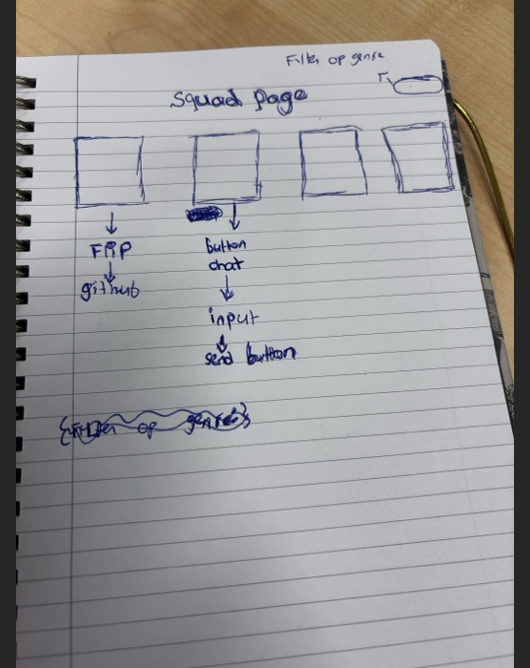 Filter op genre
Squad page
Flip
button
chat
github
input
send button
Filter op genre